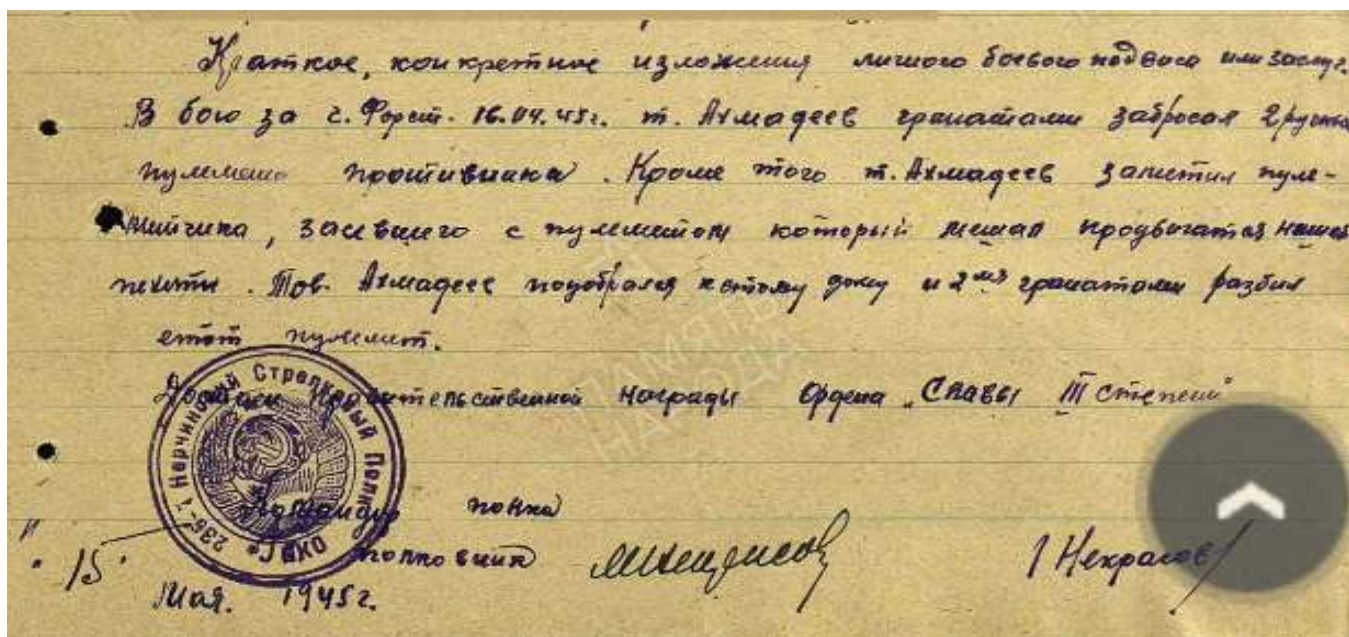 Краткое, конкретное изложения личного боевого подвига или заслуг.
В бою за г. Форст. 16.04.45г. т. Ахмадеев гранатами забросал 2 ручных
пулемета противника. Кроме того т. Ахмадеев заметил пуле-
метчика, засевшего с пулеметом который мешал продвигатся нашей
пехоты. Тов. Ахмадеев подобрался к этому дому и 2мя гранатами разбил
етот пулемет.
Достоен Правительственной награды Ордена „Славы III степени
236-й Нерчинский Стрелковый Полк
Командир полка
полковник
/Некрасов/
"15"
Мая. 1945г.
ПАМЯТЬ
НАРОДА